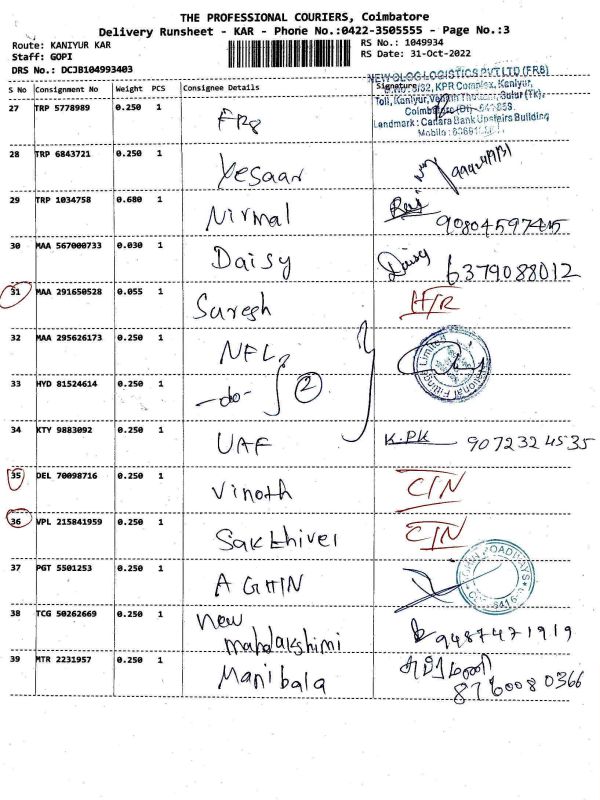 THE PROFESSIONAL COURIERS, Coimbatore
Delivery Runsheet - KAR - Phone No.:0422-3505555 - Page No.:3
Route: KANIYUR KAR
RS No.: 1049934
Staff: GOPI
RS Date: 31-Oct-2022
DRS No.: DCJB104993403
S No Consignment No Weight PCS Consignee Details Signature
NEW OLOG LOGISTICS PVT LTD (FRB)
KPR Complex, Kaniyur,
Landmark: Canara Bank Upstairs Building
27 TRP 5778989 0.250 1
28 TRP 6843721 0.250 1 Yesaar
29 TRP 1034758 0.680 1 Nirmal
30 MAA 567000733 0.030 1 Daisy Daisy 6379088012
31 MAA 291650528 0.055 1 Suregh
32 MAA 295626173 0.250 1 NFL
33 HYD 81524614 0.250 1 -do- 2
34 KTY 9883092 0.250 1 UAF K.PK 9072324535
35 DEL 70098716 0.250 1 Vinoth
36 VPL 215841959 0.250 1 Sakthivel
37 PGT 5501253 0.250 1
38 TCG 50262669 0.250 1 New Mahalakshimi 9487471919
39 MTR 2231957 0.250 1 Manibala 8760080366